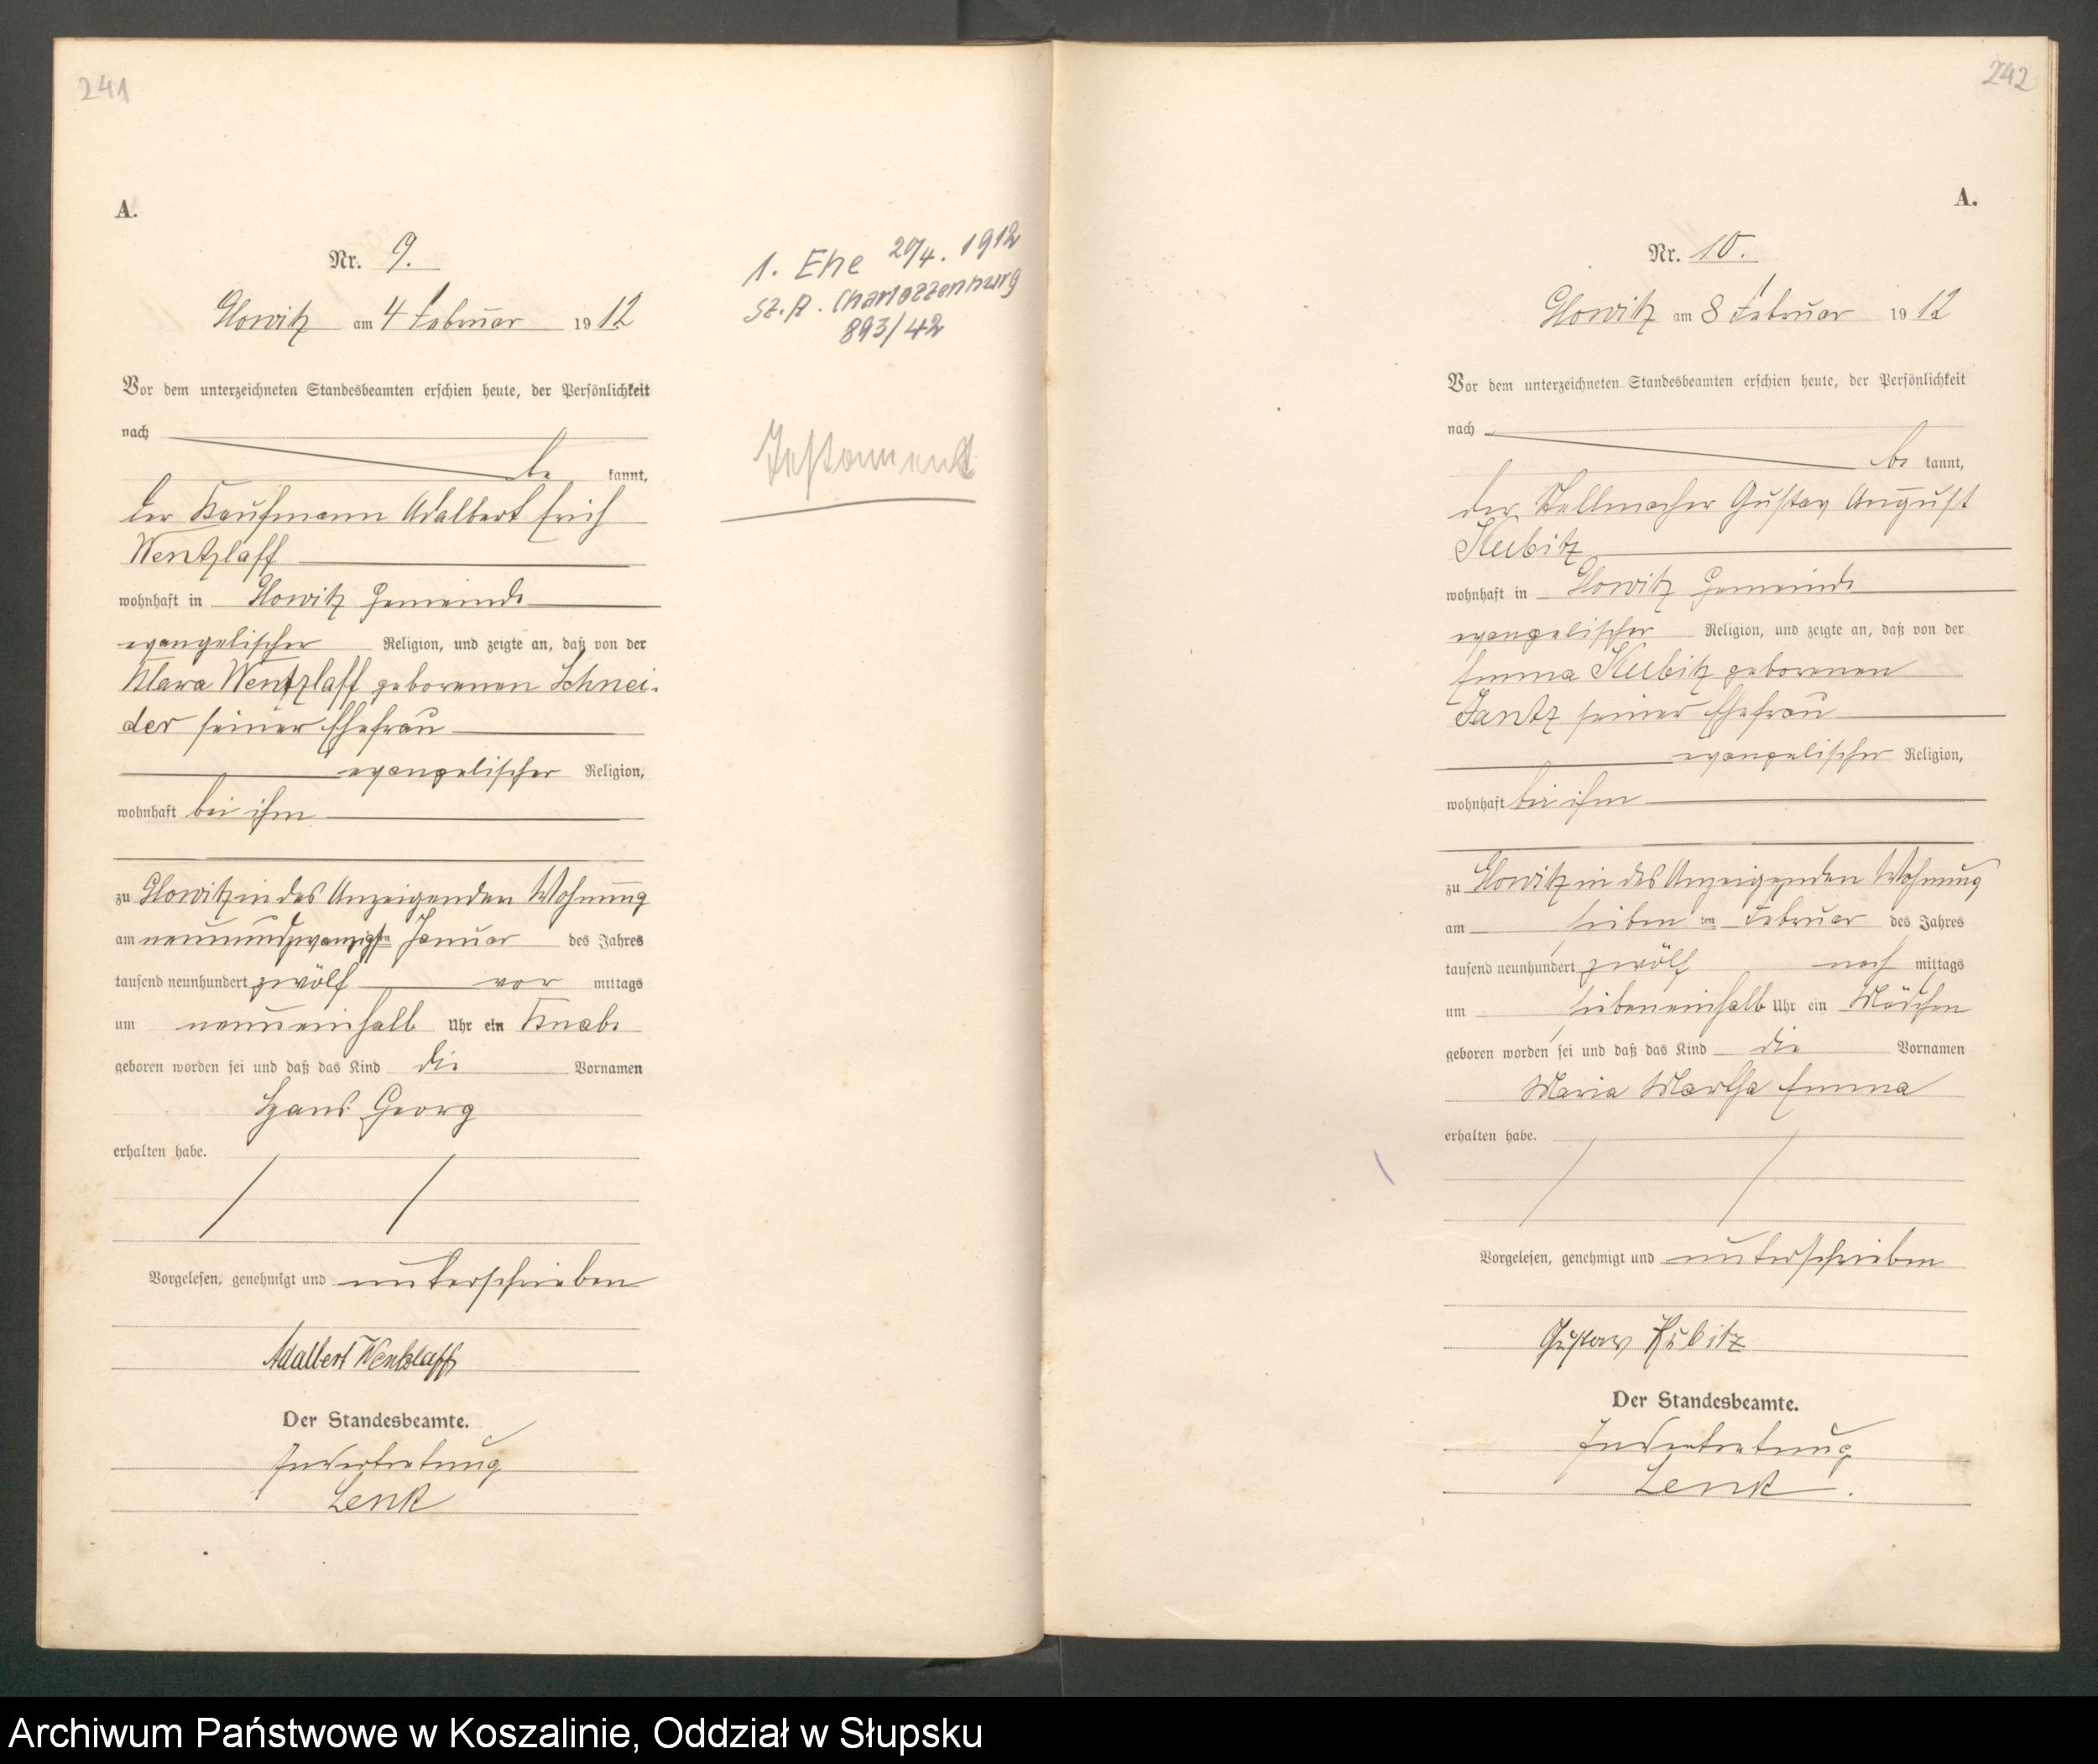 241
A.
Nr. 9.
Glowitz am 4 Februar 1912
Vor dem unterzeichneten Standesbeamten erschien heute, der Persönlichkeit
nach
be kannt,
der Kaufmann Adalbert Erich
Wentzlaff
wohnhaft in Glowitz Gemeinde
evangelischer Religion, und zeigte an, daß von der
Klara Wentzlaff geborenen Schnei-
der seiner Ehefrau
evangelischer Religion,
wohnhaft bei ihm
zu Glowitz in des Anzeigenden Wohnung
am neunundzwanzigsten Januar des Jahres
tausend neunhundert zwölf vor mittags
um neuneinhalb Uhr ein Knabe
geboren worden sei und daß das Kind die Vornamen
Hans Georg
erhalten habe.
Vorgelesen, genehmigt und unterschrieben
Adalbert Wentzlaff
Der Standesbeamte.
In Vertretung
Lenk
1. Ehe 1912
St. A. Charlottenburg
893/42
Testament
242
A.
Nr. 10.
Glowitz am 8 Februar 1912
Vor dem unterzeichneten Standesbeamten erschien heute, der Persönlichkeit
nach
be kannt,
der Stellmacher Gustav August
Kubitz
wohnhaft in Glowitz Gemeinde
evangelischer Religion, und zeigte an, daß von der
Emma Kubitz geborenen
Jantz seiner Ehefrau
evangelischer Religion,
wohnhaft bei ihm
zu Glowitz in des Anzeigenden Wohnung
am sieben ten Februar des Jahres
tausend neunhundert zwölf nach mittags
um siebeneinhalb Uhr ein Mädchen
geboren worden sei und daß das Kind die Vornamen
Maria Martha Emma
erhalten habe.
Vorgelesen, genehmigt und unterschrieben
Gustav Kubitz
Der Standesbeamte.
In Vertretung
Lenk.
Archiwum Państwowe w Koszalinie, Oddział w Słupsku